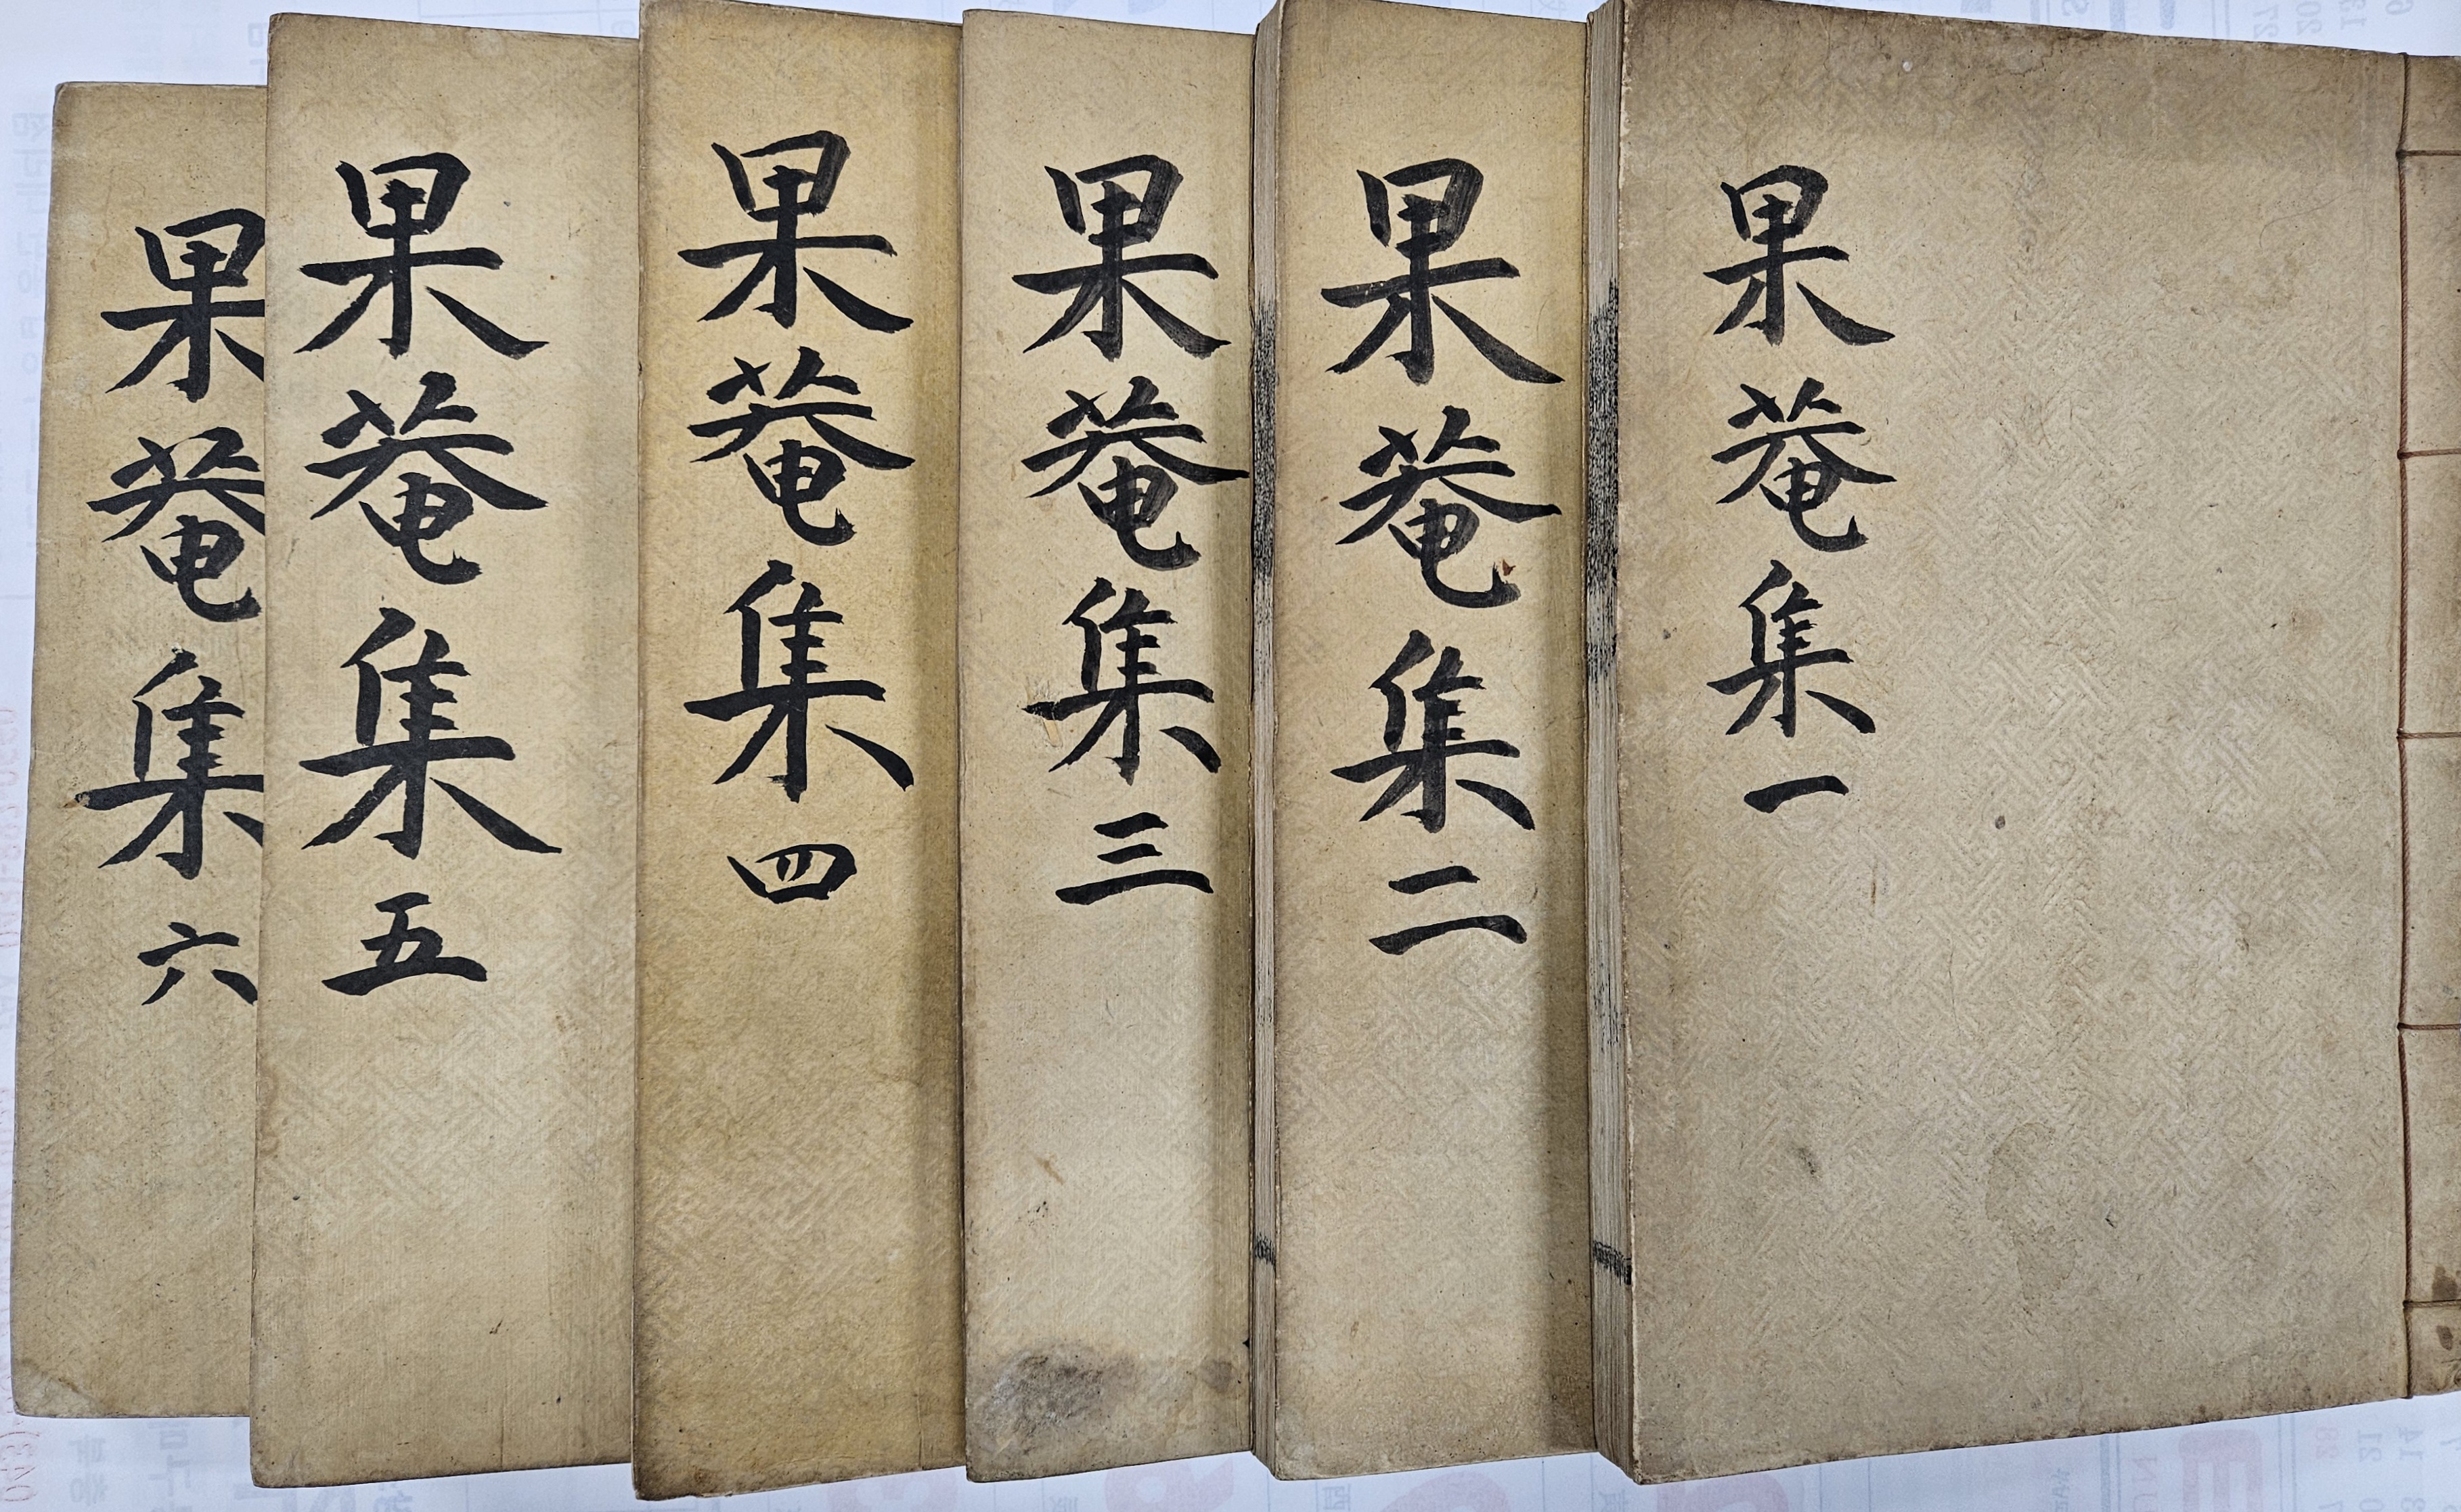 果菴集一
果菴集二
果菴集三
果菴集四
果菴集五
果菴集六